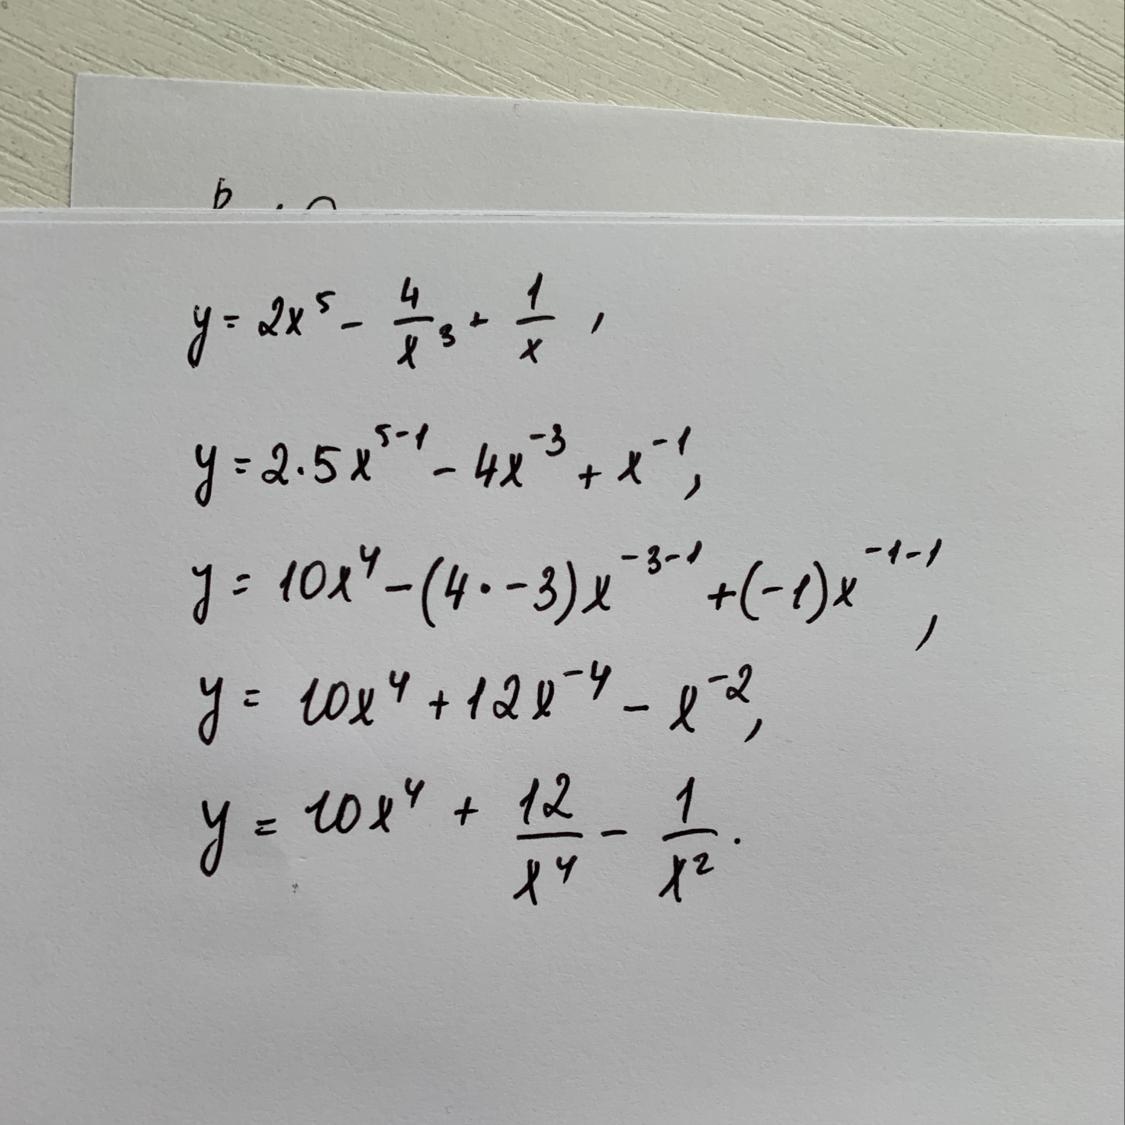 b
y = 2x⁵ - 4/x³ + 1/x ,
y = 2·5x⁵⁻¹ - 4x⁻³ + x⁻¹,
y = 10x⁴ - (4·-3)x⁻³⁻¹ + (-1)x⁻¹⁻¹,
y = 10x⁴ + 12x⁻⁴ - x⁻²,
y = 10x⁴ + 12/x⁴ - 1/x².